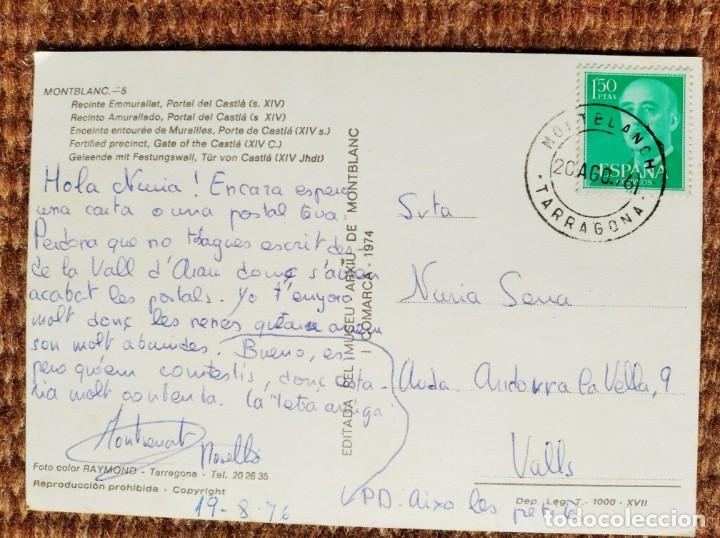 MONTBLANC.—5
Recinte Emmurallat, Portal del Castlà (s. XIV)
Recinto Amurallado, Portal del Castlá (s. XIV)
Enceinte entourée de Murailles, Porte de Castlá (XIV s.)
Fortified precinct, Gate of the Castlá (XIV C.)
Gelaende mit Festungswall, Tür von Castlá (XIV Jhdt)
Hola Nuria! Encara espero
una carta o una postal teva
Perdona que no t'hagues escrit des-
de la Vall d'Aran donç s'avien
acabat les postals. Yo t'enyoro
molt donç les nenes
son molt aburrides. Bueno, es-
pero quem contestis, donç esta-
ria molt contenta. La teva amiga:
Montserrat
Foto color RAYMOND - Tarragona - Tel. 20 26 35
Reproducción prohibida - Copyright
19-8-76
EDITADA PEL MUSEU ARXIU DE MONTBLANC
I COMARCA - 1974
1'50
PTAS
ESPAÑA
CORREOS
20 AGO. 76
TARRAGONA
Srta
Nuria Serra
Avda. Andorra la Vella, 9
Valls
Dep. Leg. T. - 1000 - XVII
PD. Aixo les
todocoleccion